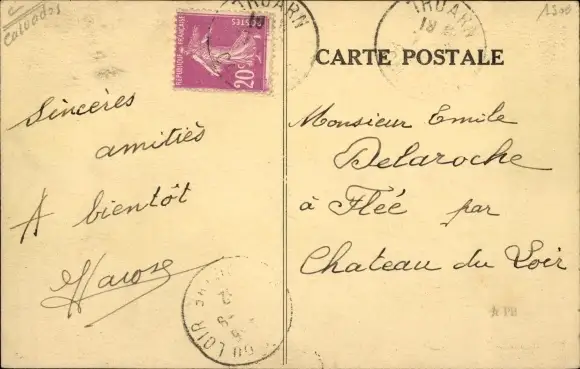 Calvados
1500
TROARN
18
TROARN
18
REPUBLIQUE FRANÇAISE
POSTES
20c
CARTE POSTALE
Sincères
amitiés
A bientôt
Monsieur Emile
Delaroche
à Flée par
Chateau du Loir
DU LOIR